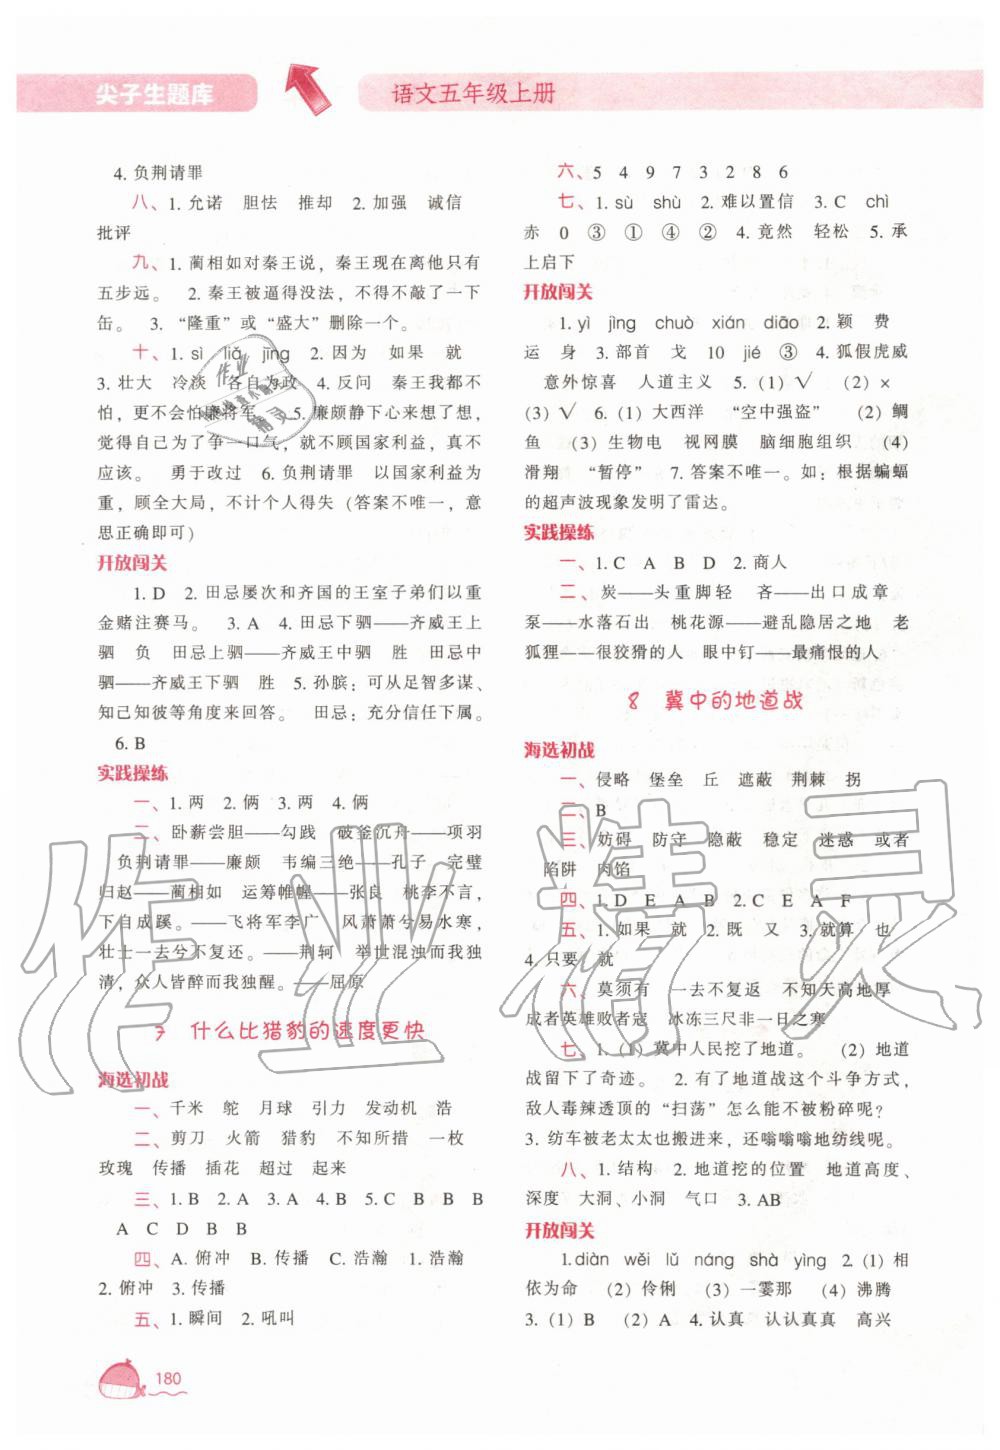 尖子生题库
语文五年级上册
4. 负荆请罪
八、1. 允诺 胆怯 推却 2. 加强 诚信
批评
九、1. 蔺相如对秦王说，秦王现在离他只有
五步远。 2. 秦王被逼得没法，不得不敲了一下
缶。 3. “隆重”或“盛大”删除一个。
十、1. sì liǎ jīng 2. 因为 如果 就
3. 壮大 冷淡 各自为政 4. 反问 秦王我都不
怕，更不会怕廉将军。 5. 廉颇静下心来想了想，
觉得自己为了争一口气，就不顾国家利益，真不
应该。 勇于改过 6. 负荆请罪 以国家利益为
重，顾全大局，不计个人得失(答案不唯一，意
思正确即可)
开放闯关
1. D 2. 田忌屡次和齐国的王室子弟们以重
金赌注赛马。 3. A 4. 田忌下驷——齐威王上
驷 负 田忌上驷——齐威王中驷 胜 田忌中
驷——齐威王下驷 胜 5. 孙膑：可从足智多谋、
知己知彼等角度来回答。 田忌：充分信任下属。
6. B
实践操练
一、1. 两 2. 俩 3. 两 4. 俩
二、卧薪尝胆——勾践 破釜沉舟——项羽
负荆请罪——廉颇 韦编三绝——孔子 完璧
归赵——蔺相如 运筹帷幄——张良 桃李不言，
下自成蹊。——飞将军李广 风萧萧兮易水寒，
壮士一去兮不复还。——荆轲 举世混浊而我独
清，众人皆醉而我独醒。——屈原
7 什么比猎豹的速度更快
海选初战
一、千米 鸵 月球 引力 发动机 浩
二、剪刀 火箭 猎豹 不知所措 一枚
玫瑰 传播 插花 超过 起来
三、1. B 2. A 3. A 4. B 5. C B B B
A C D B B
四、A. 俯冲 B. 传播 C. 浩瀚 1. 浩瀚
2. 俯冲 3. 传播
五、1. 瞬间 2. 吼叫
180
六、5 4 9 7 3 2 8 6
七、1. sù shù 2. 难以置信 3. C chì
赤 0 ③ ① ④ ② 4. 竟然 轻松 5. 承
上启下
开放闯关
1. yì jìng chuò xián diāo 2. 颖 费
运 身 3. 部首 戈 10 jié ③ 4. 狐假虎威
意外惊喜 人道主义 5. (1) √ (2) ×
(3) √ 6. (1) 大西洋 “空中强盗” (2) 鲷
鱼 (3) 生物电 视网膜 脑细胞组织 (4)
滑翔 “暂停” 7. 答案不唯一。如：根据蝙蝠
的超声波现象发明了雷达。
实践操练
一、1. C A B D 2. 商人
二、炭——头重脚轻 吝——出口成章
泵——水落石出 桃花源——避乱隐居之地 老
狐狸——很狡猾的人 眼中钉——最痛恨的人
8 冀中的地道战
海选初战
一、侵略 堡垒 丘 遮蔽 荆棘 拐
二、B
三、妨碍 防守 隐蔽 稳定 迷惑 或者
陷阱 肉馅
四、1. D E A B 2. C E A F
五、1. 如果 就 2. 既 又 3. 就算 也
4. 只要 就
六、莫须有 一去不复返 不知天高地厚
成者英雄败者寇 冰冻三尺非一日之寒
七、1. (1) 冀中人民挖了地道。 (2) 地道
战留下了奇迹。 2. 有了地道战这个斗争方式，
敌人毒辣透顶的“扫荡”怎么能不被粉碎呢？
3. 纺车被老太太也搬进来，还嗡嗡嗡地纺线呢。
八、1. 结构 2. 地道挖的位置 地道高度、
深度 大洞、小洞 气口 3. AB
开放闯关
1. diàn wěi lǔ náng shà yìng 2. (1) 相
依为命 (2) 伶俐 (3) 一霎那 (4) 沸腾
3. (1) B (2) A 4. 认真 认认真真 高兴
作业精灵